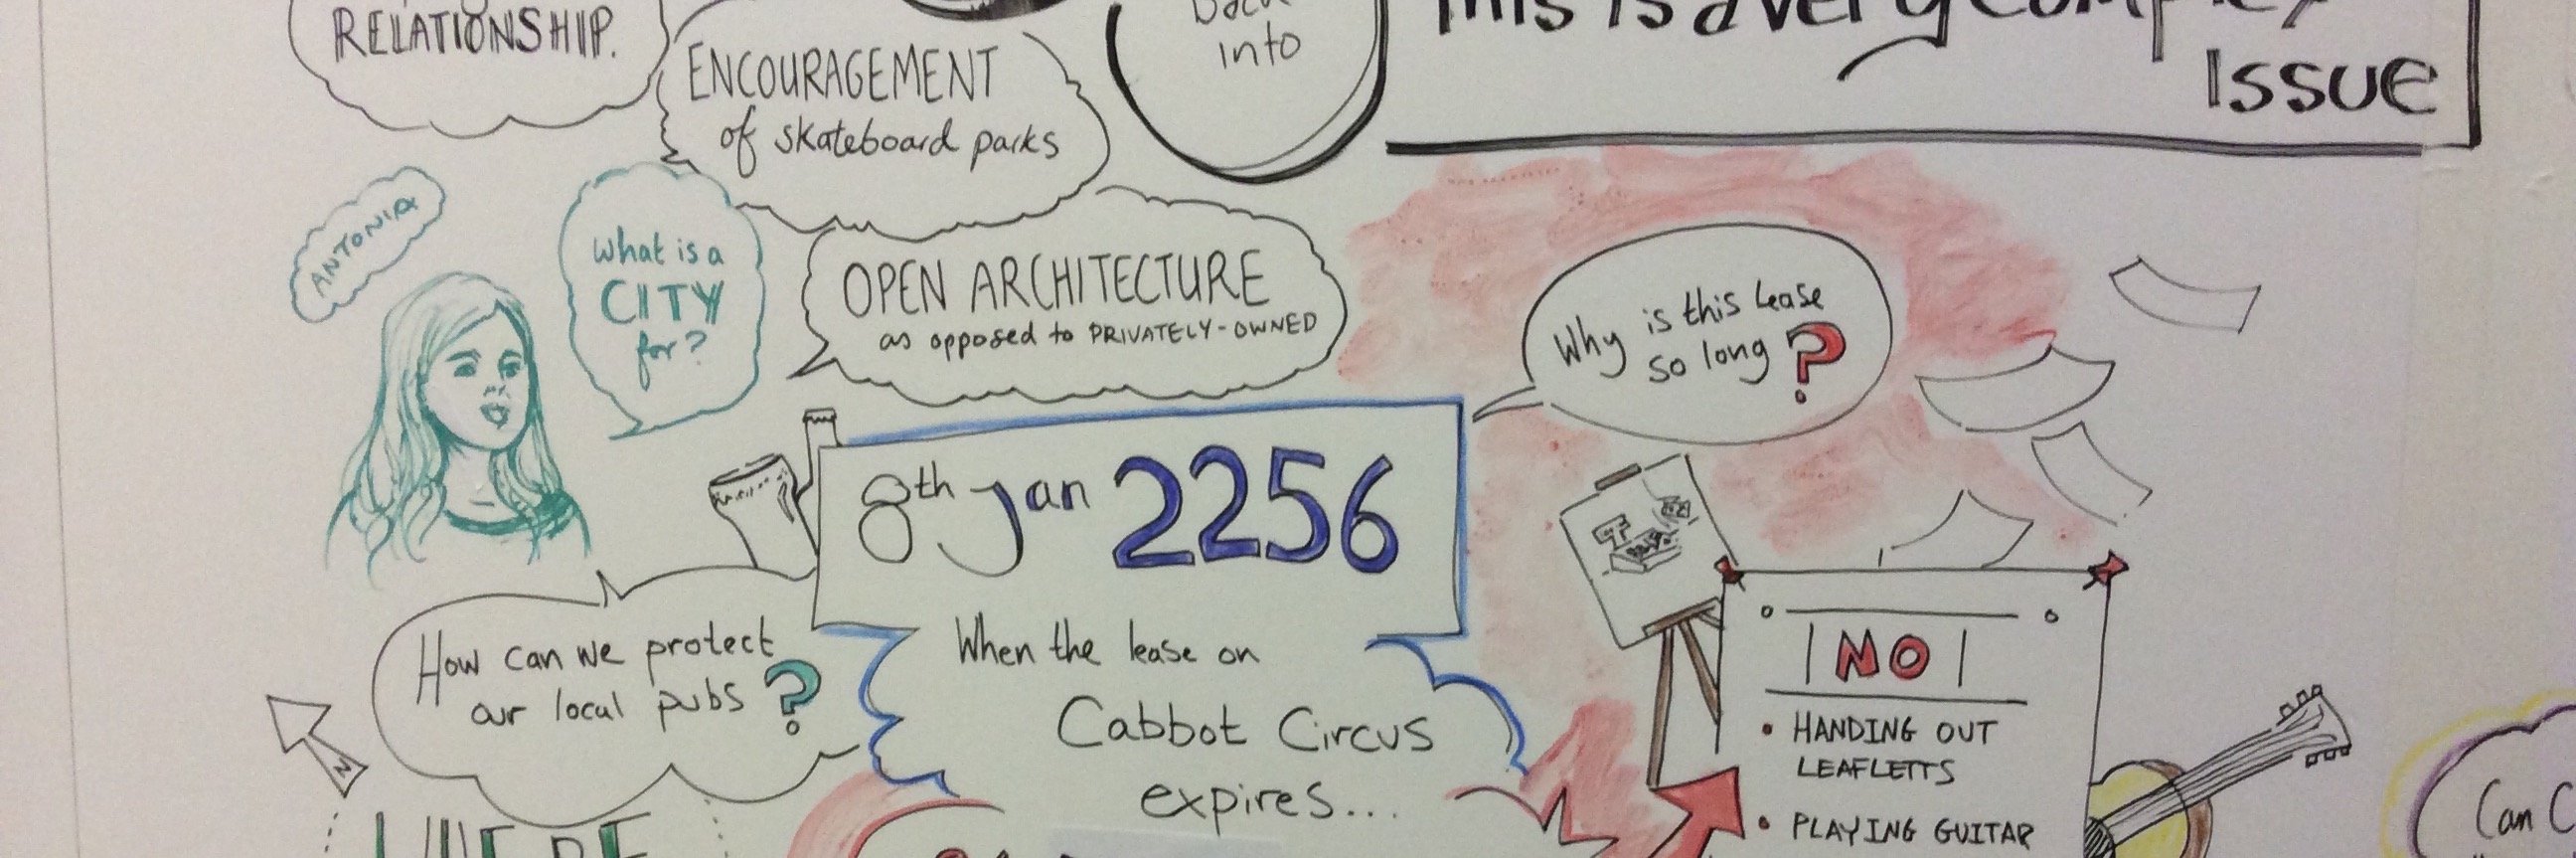 RELATIONSHIP.
ENCOURAGEMENT
of skateboard parks
back
into
This is a very complex
ISSUE
ANTONIA
What is a
CITY
for?
OPEN ARCHITECTURE
as opposed to PRIVATELY-OWNED
Why is this lease
so long?
8th Jan 2256
When the lease on
Cabbot Circus
expires...
How can we protect
our local pubs?
N
NO
• HANDING OUT
LEAFLETTS
• PLAYING GUITAR
Can